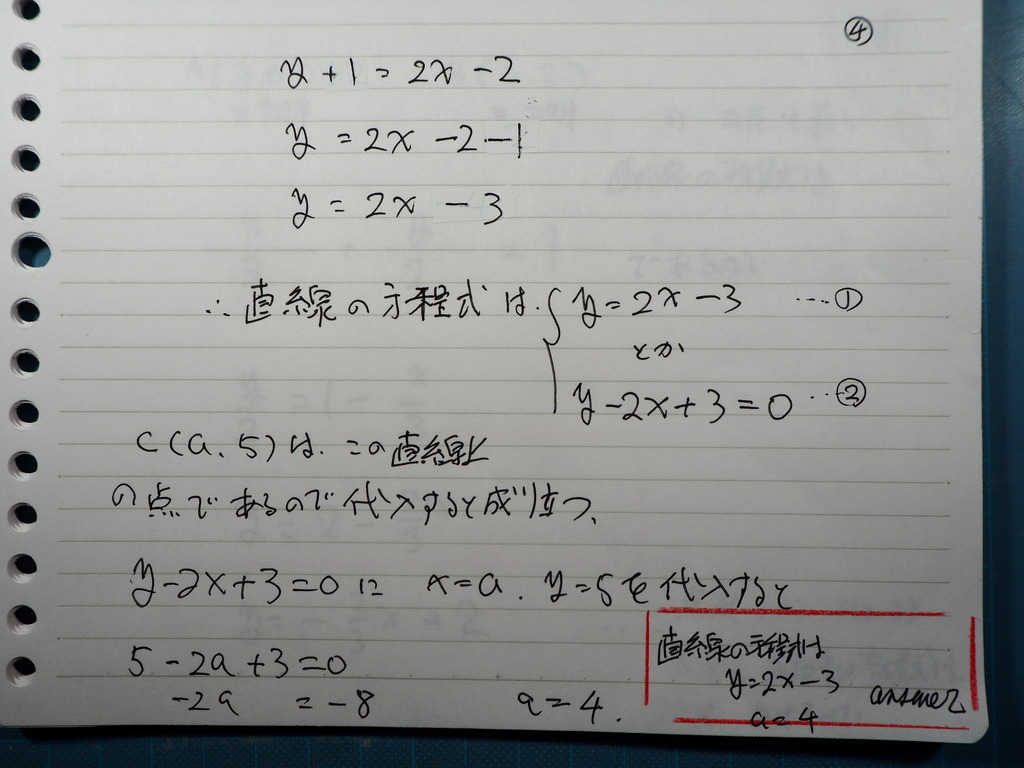 ④
y + 1 = 2x - 2
y = 2x - 2 - 1
y = 2x - 3
∴ 直線の方程式は. { y = 2x - 3 ・・・①
とか
y - 2x + 3 = 0 ・・②
C(a, 5)は、この直線上
の点であるので代入すると成り立つ、
y - 2x + 3 = 0 に x = a. y = 5 を代入すると
5 - 2a + 3 = 0
-2a = -8 a = 4.
直線の方程式は
y = 2x - 3
a = 4
answer